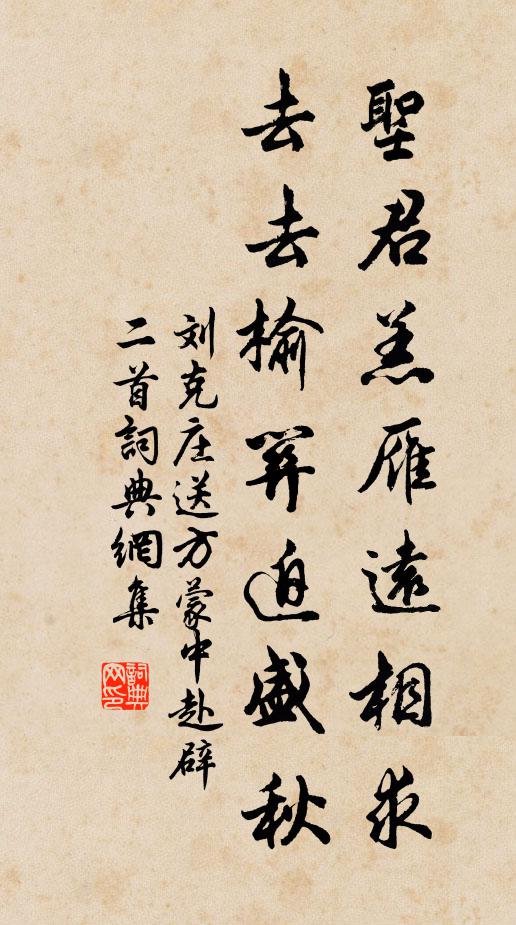 聖君羔雁遠相求
去去榆關迫盛秋
刘克庄送方蒙中赴辟
二首詞典網集
詞典网印